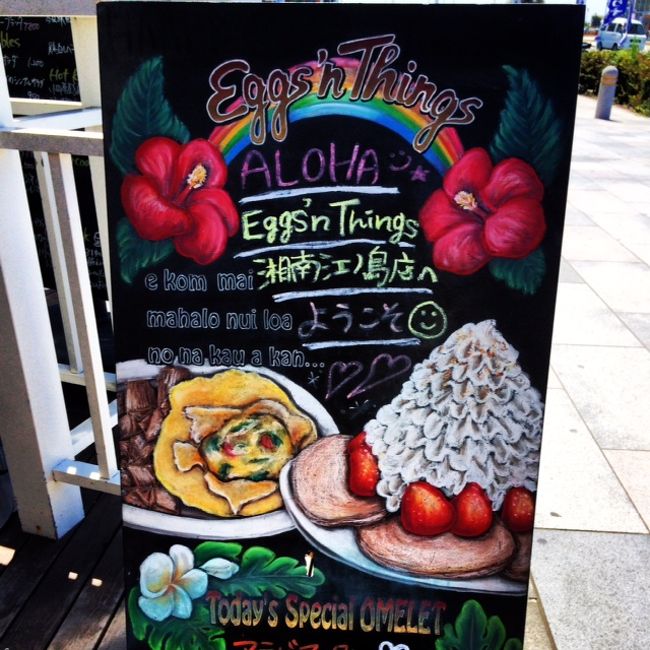 Eggs'n Things
ALOHA
Eggs'n Things
湘南江ノ島店へ
e kom mai
ようこそ
mahalo nui loa
no na kau a kan...
Today's Special OMELET